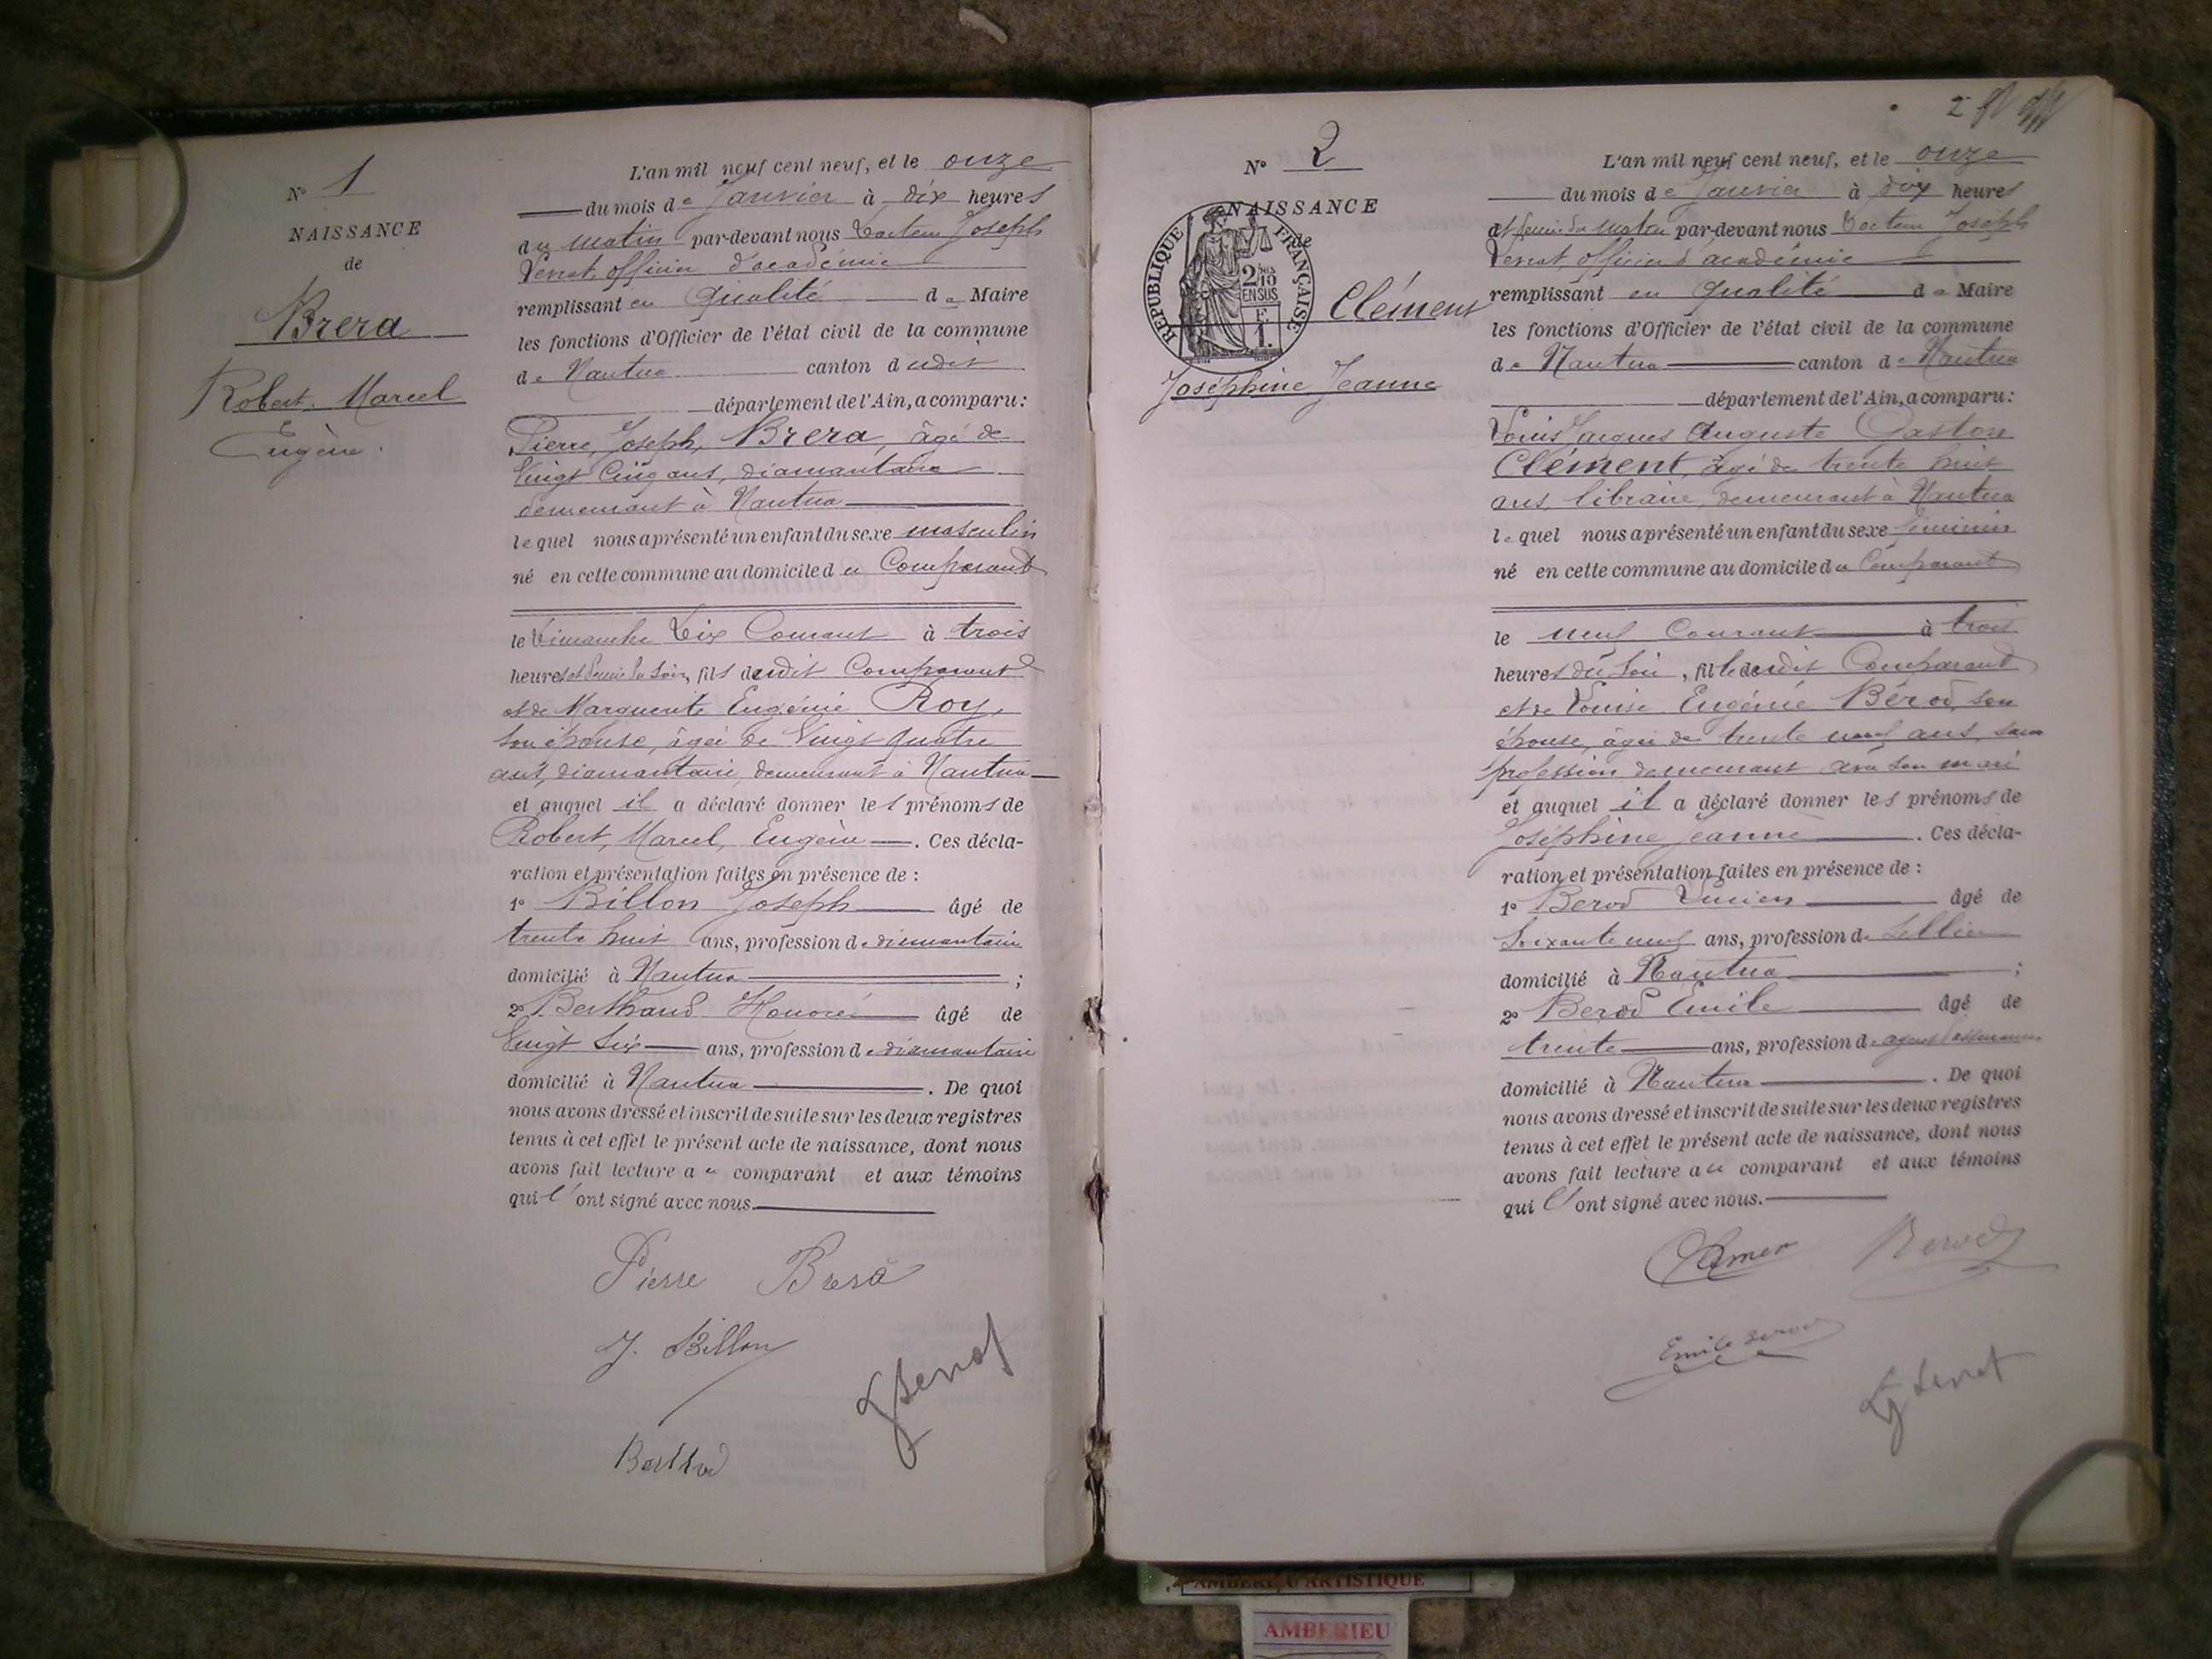 N° 1
NAISSANCE
de
Brera
Robert, Marcel
Eugène.
L'an mil neuf cent neuf, et le onze
du mois de Janvier à dix heures
du matin par-devant nous Docteur Joseph
officier d'académie
remplissant en qualité de Maire
les fonctions d'Officier de l'état civil de la commune
de Nantua canton dudit
département de l'Ain, a comparu :
Pierre, Joseph, Brera, âgé de
Vingt Cinq ans, diamantaire
demeurant à Nantua
lequel nous a présenté un enfant du sexe masculin
né en cette commune au domicile du Comparant
le Dimanche Dix Courant à trois
heures et demie du Soir, fils dudit Comparant
et de Marguerite Eugénie Roy,
son épouse, âgée de Vingt quatre
ans, diamantaire, demeurant à Nantua
et auquel il a déclaré donner les prénoms de
Robert, Marcel, Eugène. Ces décla-
ration et présentation faites en présence de :
1° Billon Joseph âgé de
trente huit ans, profession de diamantaire
domicilié à Nantua ;
2° Berthaud Honoré âgé de
Vingt Six ans, profession de diamantaire
domicilié à Nantua. De quoi
nous avons dressé et inscrit de suite sur les deux registres
tenus à cet effet le présent acte de naissance, dont nous
avons fait lecture au comparant et aux témoins
qui l'ont signé avec nous.
Pierre Brera
J. Billon
2
N° 2
NAISSANCE
de
REPUBLIQUE FRANÇAISE
2/10
EN SUS
F
1.
Clément
Joséphine Jeanne
L'an mil neuf cent neuf, et le onze
du mois de Janvier à dix heures
et demie du matin par-devant nous Docteur Joseph
officier d'académie
remplissant en qualité de Maire
les fonctions d'Officier de l'état civil de la commune
de Nantua canton de Nantua
département de l'Ain, a comparu :
Louis Jacques Auguste Gaston
Clément, âgé de trente huit
ans, libraire, demeurant à Nantua
lequel nous a présenté un enfant du sexe féminin
né en cette commune au domicile du Comparant
le neuf Courant à trois
heures du Soir, fille dudit Comparant
et de Louise Eugénie Bérod, son
épouse, âgée de trente neuf ans, sans
profession demeurant avec son mari
et auquel il a déclaré donner les prénoms de
Joséphine Jeanne. Ces décla-
ration et présentation faites en présence de :
1° Berod Lucien âgé de
Soixante neuf ans, profession de Sellier
domicilié à Nantua ;
2° Berod Emile âgé de
trente ans, profession d'agent d'assurances
domicilié à Nantua. De quoi
nous avons dressé et inscrit de suite sur les deux registres
tenus à cet effet le présent acte de naissance, dont nous
avons fait lecture au comparant et aux témoins
qui l'ont signé avec nous.
Berod
Emile Berod
AMBERIEU ARTISTIQUE
AMBERIEU